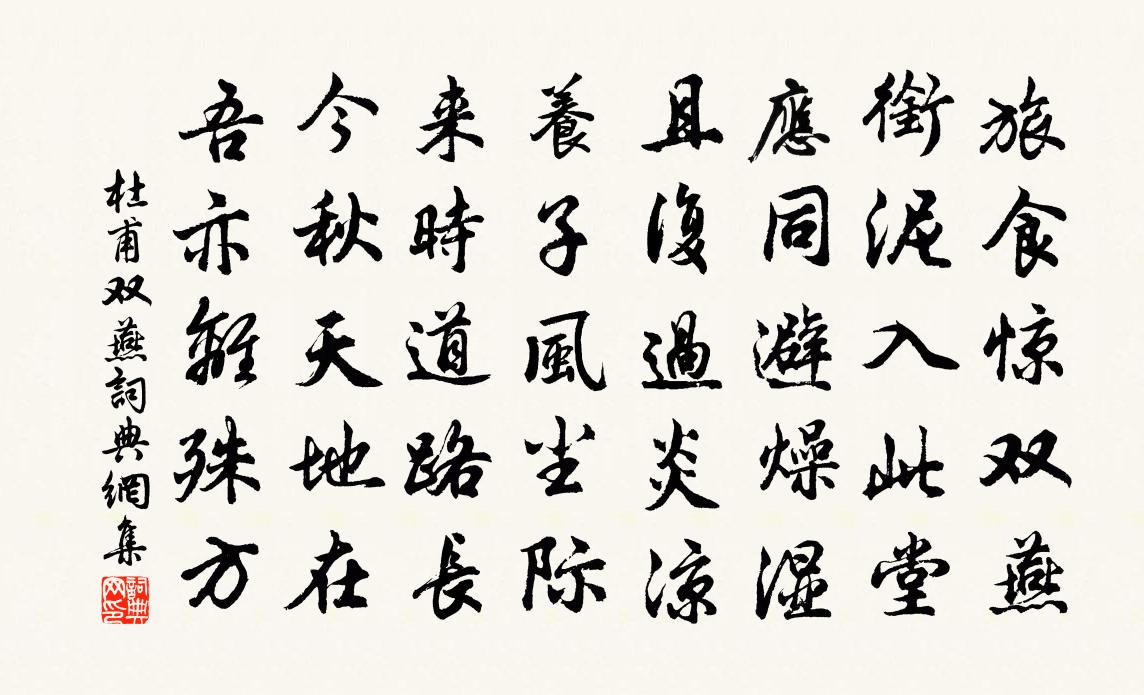 旅食惊双燕
銜泥入此堂
應同避燥湿
且復過炎凉
養子風尘际
来時道路長
今秋天地在
吾亦離殊方
杜甫双燕詞典網集
詞典网印